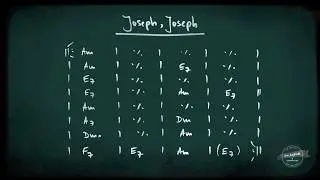 Joseph, Joseph
||: Am | ٪ | ٪ | ٪ |
| Am | ٪ | E7 | ٪ |
| E7 | ٪ | ٪ | ٪ |
| E7 | ٪ | Am | E7 ||
| Am | ٪ | ٪ | ٪ |
| A7 | ٪ | Dm | ٪ |
| Dm | ٪ | Am | ٪ |
| F7 | E7 | Am | (E7) :||